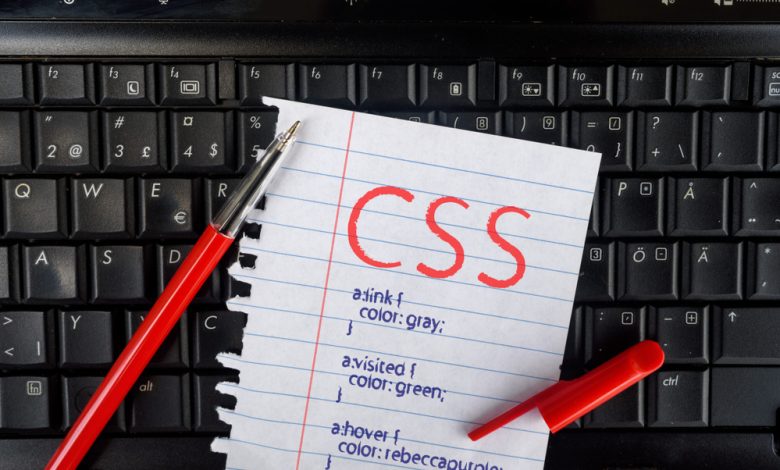 f2 f3 f4 f5 f6 f7 f8 f9 f10 f11 f12
" # ¤ % ( = ?
2 @ 3 £ 4 $ 5 8 +
Q W E R P Å
€
A S Ö Ä
> Y C
<
fn alt ctrl
CSS
a:link {
color: gray;
}
a:visited {
color: green;
}
a:hover {
color: rebeccapurple;
}